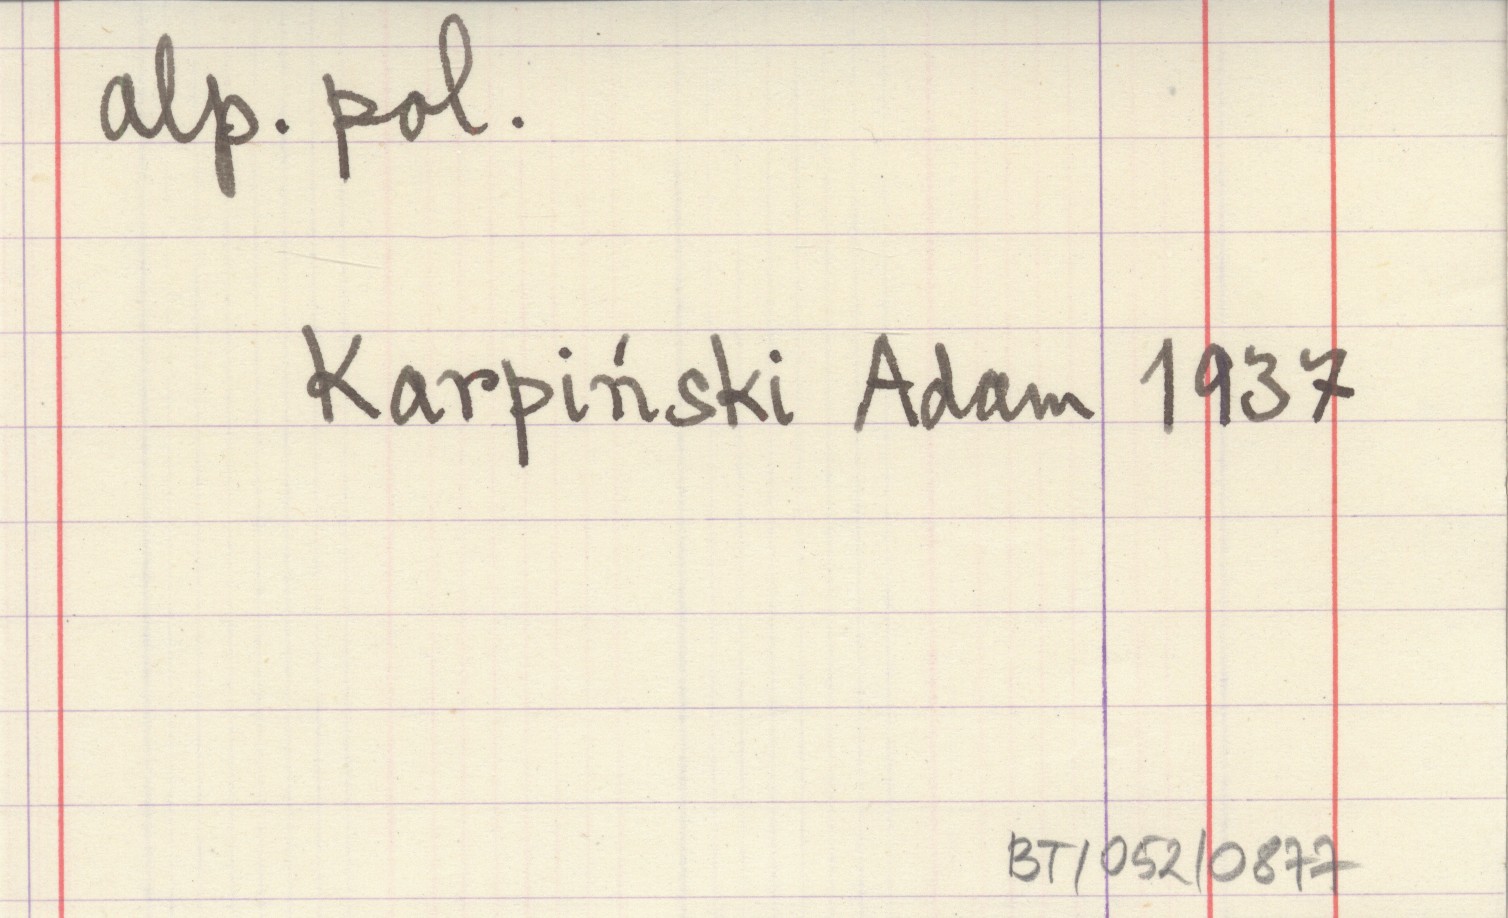 alp. pol.
Karpiński Adam 1937
BT/052/0877